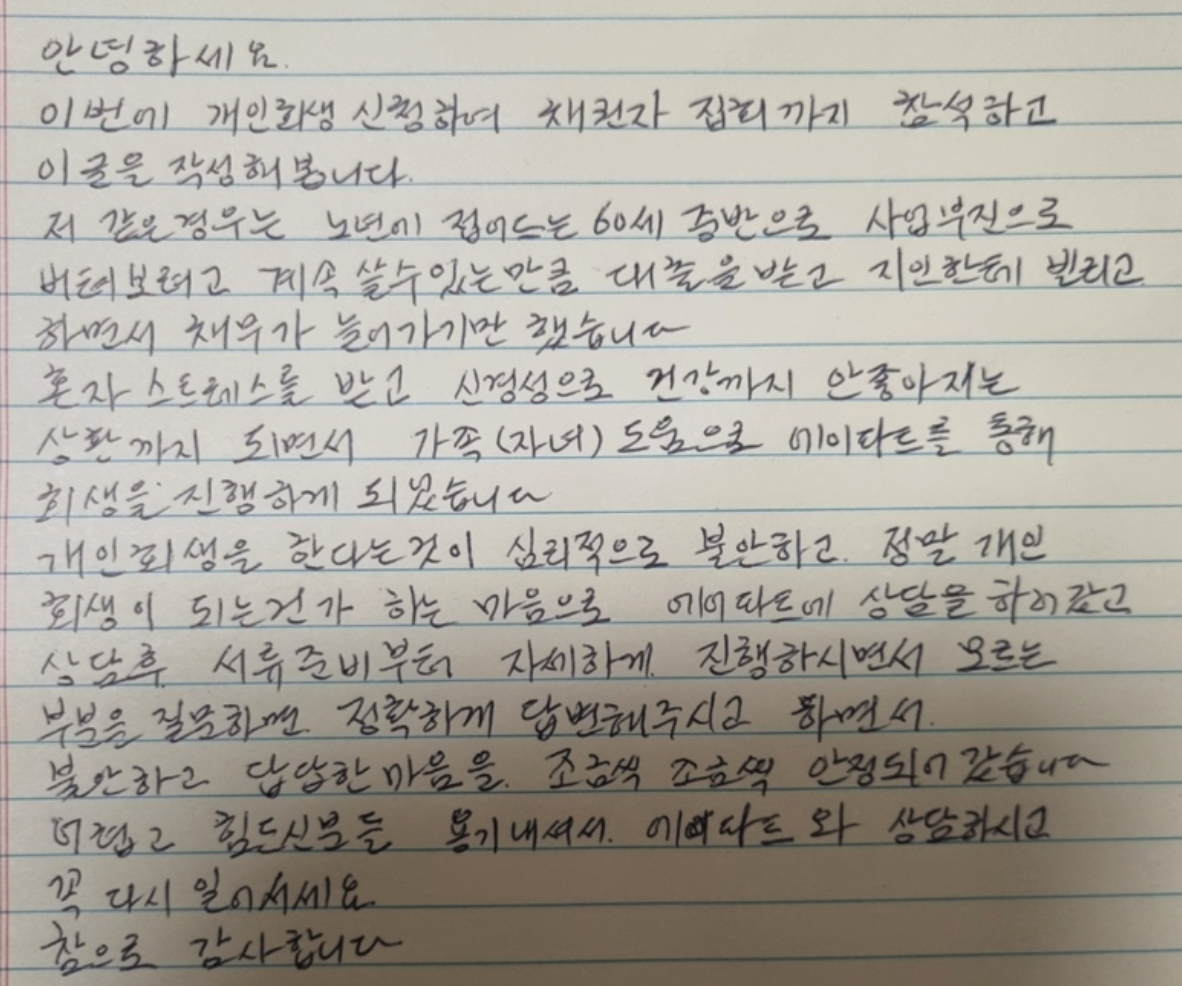 안녕하세요.
이번에 개인회생 신청하여 채권자 집회까지 참석하고
이글을 작성해 봅니다.
저 같은경우는 노년에 접어드는 60세 중반으로 사업부진으로
버텨보려고 계속 쓸수있는만큼 대출을 받고 지인한테 빌리고
하면서 채무가 늘어가기만 했습니다
혼자 스트레스를 받고 신경성으로 건강까지 안좋아지는
상황까지 되면서 가족(자녀) 도움으로 에이파트를 통해
회생을 진행하게 되었습니다
개인회생을 한다는것이 심리적으로 불안하고. 정말 개인
회생이 되는건가 하는 마음으로 에이파트에 상담을 하러갔고
상담후 서류준비부터 자세하게 진행하시면서 모르는
부분은 질문하면. 정확하게 답변해주시고 하면서.
불안하고 답답한마음을. 조금씩 조금씩 안정되어 갔습니다
어렵고 힘드신분들 용기내셔서. 에이파트와 상담하시고
꼭 다시 일어서세요
참으로 감사합니다